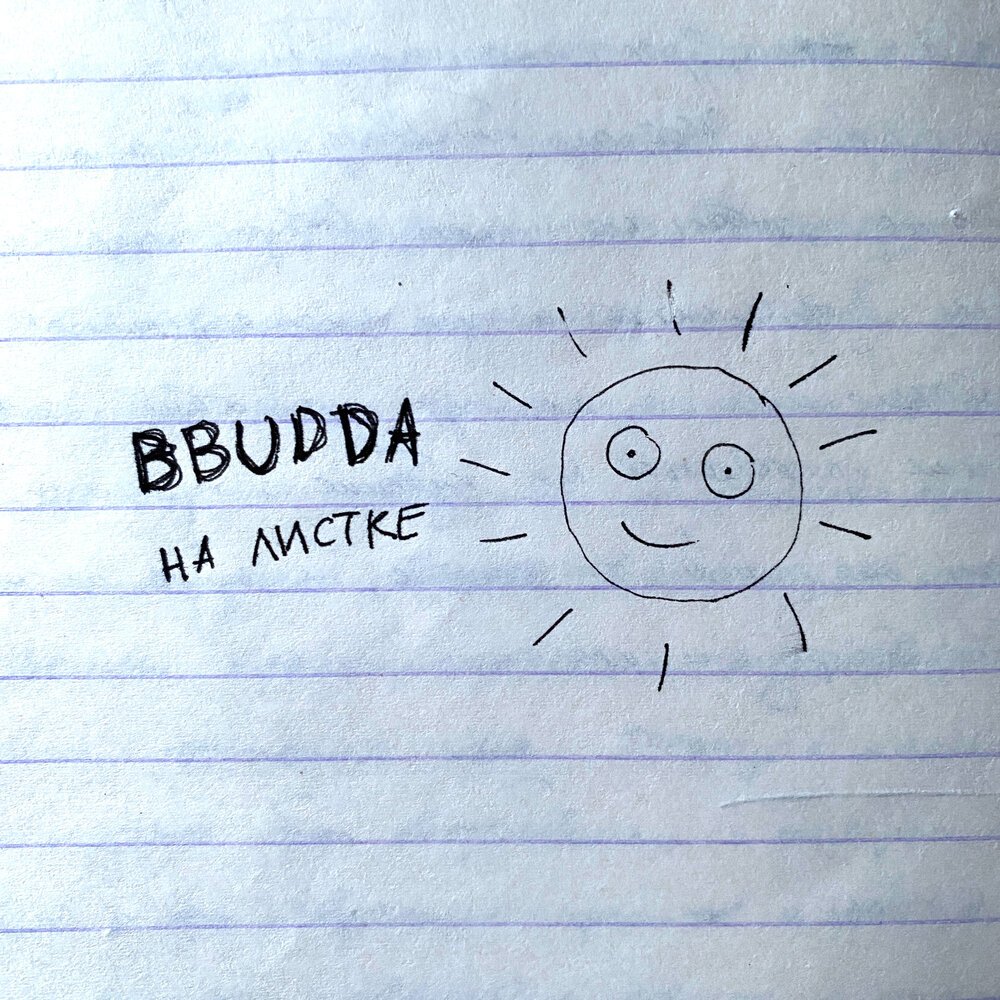 BBUDDA
НА ЛИСТКЕ